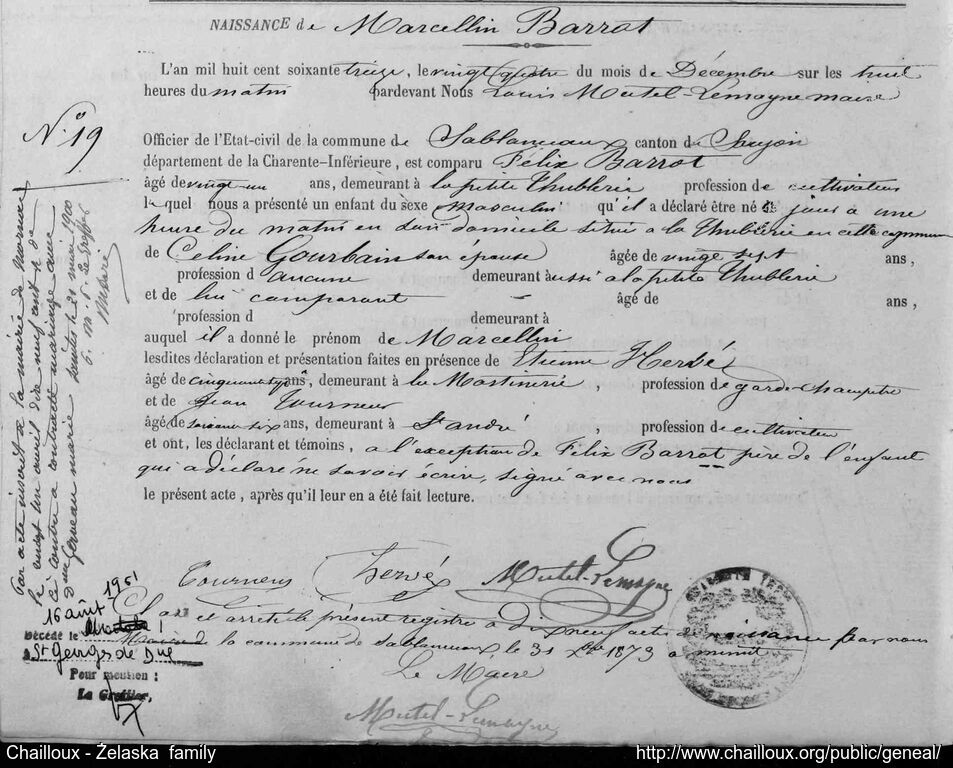 NAISSANCE de Marcellin Barrot
L'an mil huit cent soixante treize, le vingt quatre du mois de Décembre sur les huit
heures du matin pardevant Nous Louis Mutel-Lemoyne maire
N° 19
Officier de l'Etat-civil de la commune de Sablanceaux canton de Saujon
département de la Charente-Inférieure, est comparu Félix Barrot
âgé de vingt un ans, demeurant à la petite Thublerie profession de cultivateur
lequel nous a présenté un enfant du sexe masculin qu'il a déclaré être né jours a une
heure du matin en son domicile situé a la Thublerie en cette commune
de Celine Gourbain son épouse âgée de vingt sept ans,
profession d aucune demeurant à aussi a la petite Thublerie
et de lui comparant âgé de ans,
profession d demeurant à
auquel il a donné le prénom de Marcellin
lesdites déclaration et présentation faites en présence de Etienne Hervé
âgé de cinquante ans, demeurant à la Mostinerie, profession de garde champetre
et de Jean Tourneur
âgé de soixante six ans, demeurant à St andré, profession de cultivateur
et ont, les déclarant et témoins, a l'exception de Félix Barrot père de l'enfant
qui a déclaré ne savoir écrire, signé avec nous
le présent acte, après qu'il leur en a été fait lecture.
Par acte inscrit à la mairie de
le vingt un avril dix neuf cent
ci contre a contracté mariage avec
Marie
Saintes le 21 1900
Le Greffier
Tourneur Hervé Mutel-Lemoyne
Clos et arrêté le présent registre a dix neuf actes de naissance par nous
Maire de la commune de Sablanceaux le 31 Xbre 1873 a minuit
Le Maire
Mutel-Lemoyne
16 août 1961
Décédé le
à St Georges de Did
Pour mention :
Le Greffier,
Chailloux - Żelaska family
http://www.chailloux.org/public/geneal/